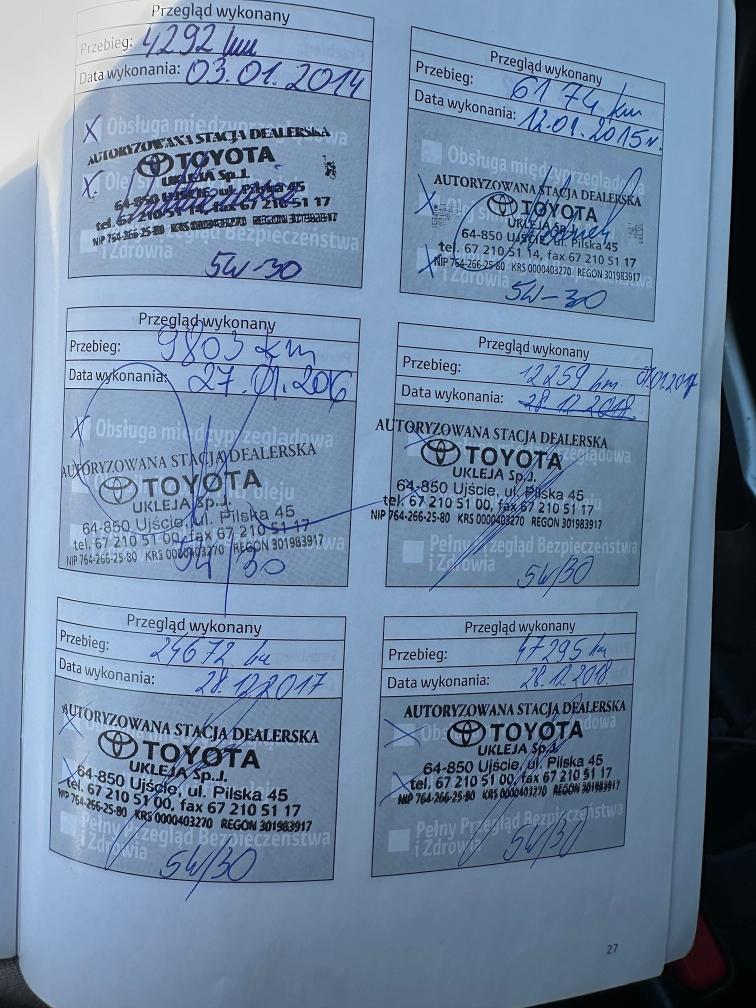 Przegląd wykonany
Przebieg: 4292 km
Data wykonania: 03.01.2014
Obsługa międzyprzeglądowa
AUTORYZOWANA STACJA DEALERSKA
TOYOTA
UKLEJA Sp.J.
64-850 Ujście, ul. Pilska 45
tel. 67 210 51 14, fax 67 210 51 17
NIP 764-266-25-80 KRS 0000403270 REGON 301983917
Przegląd Bezpieczeństwa
i Zdrowia
5W-30
Przegląd wykonany
Przebieg: 6174 km
Data wykonania: 12.01.2015r.
Obsługa międzyprzeglądowa
AUTORYZOWANA STACJA DEALERSKA
TOYOTA
UKLEJA Sp.J.
64-850 Ujście, ul. Pilska 45
tel. 67 210 51 14, fax 67 210 51 17
NIP 764-266-25-80 KRS 0000403270 REGON 301983917
i Zdrowia
5W-30
Przegląd wykonany
Przebieg: 9803 km
Data wykonania: 27.01.206
Obsługa międzyprzeglądowa
AUTORYZOWANA STACJA DEALERSKA
TOYOTA
oleju
UKLEJA Sp.J.
64-850 Ujście, ul. Pilska 45
tel. 67 210 51 00, fax 67 210 51 17
NIP 764-266-25-80 KRS 0000403270 REGON 301983917
5W/30
Przegląd wykonany
Przebieg: 12259 km. 07.01.2017
Data wykonania: 28.12.2018
AUTORYZOWANA STACJA DEALERSKA
TOYOTA
UKLEJA Sp.J.
64-850 Ujście, ul. Pilska 45
tel. 67 210 51 00, fax 67 210 51 17
NIP 764-266-25-80 KRS 0000403270 REGON 301983917
Pełny Przegląd Bezpieczeństwa
i Zdrowia
5W/30
Przegląd wykonany
Przebieg: 24672 km
Data wykonania: 28.12.2017
AUTORYZOWANA STACJA DEALERSKA
TOYOTA
UKLEJA Sp.J.
64-850 Ujście, ul. Pilska 45
tel. 67 210 51 00, fax 67 210 51 17
NIP 764-266-25-80 KRS 0000403270 REGON 301983917
Pełny Przegląd Bezpieczeństwa
i Zdrowia
5W/30
Przegląd wykonany
Przebieg: 47295 km
Data wykonania: 28.12.2018
AUTORYZOWANA STACJA DEALERSKA
TOYOTA
UKLEJA Sp.J.
64-850 Ujście, ul. Pilska 45
tel. 67 210 51 00, fax 67 210 51 17
NIP 764-266-25-80 KRS 0000403270 REGON 301983917
Pełny Przegląd Bezpieczeństwa
i Zdrowia
5W/30
27